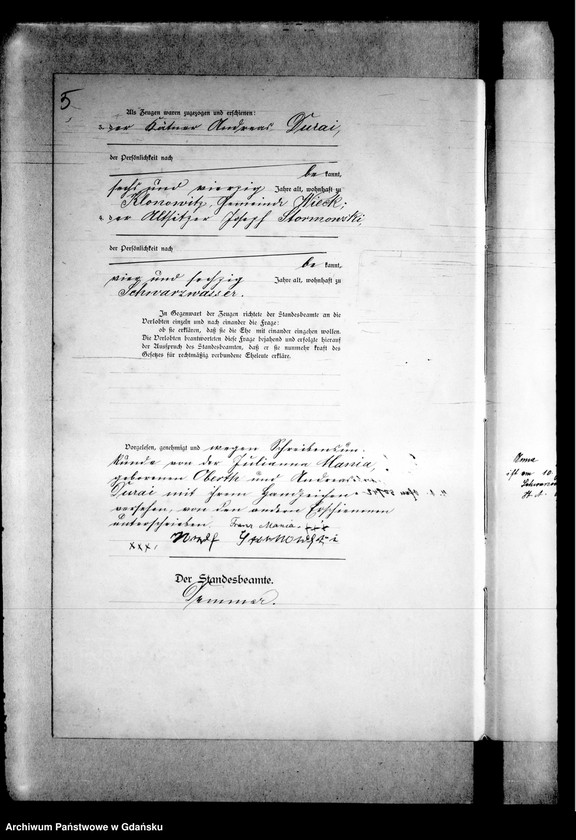 5.
Als Zeugen waren zugezogen und erschienen:
3. der Kätner Andreas Durai,
der Persönlichkeit nach
be kannt,
sechs und vierzig Jahre alt, wohnhaft zu
Klonowitz, Gemeinde Wieck;
4. der Altsitzer Joseph Stormowski,
der Persönlichkeit nach
be kannt,
vier und sechzig Jahre alt, wohnhaft zu
Schwarzwasser.
In Gegenwart der Zeugen richtete der Standesbeamte an die
Verlobten einzeln und nach einander die Frage:
ob sie erklären, daß sie die Ehe mit einander eingehen wollen.
Die Verlobten beantworteten diese Frage bejahend und erfolgte hierauf
der Ausspruch des Standesbeamten, daß er sie nunmehr kraft des
Gesetzes für rechtmäßig verbundene Eheleute erkläre.
Vorgelesen, genehmigt und wegen Schreibensun-
kunde von der Julianna Mania,
geborenen und Andreas
Durai mit ihrem Handzeichen
versehen, von den andern Erschienenen
unterschrieben. Franz Mania xxx
xxx,
Der Standesbeamte.
ist am 10.
St. A.
Archiwum Państwowe w Gdańsku